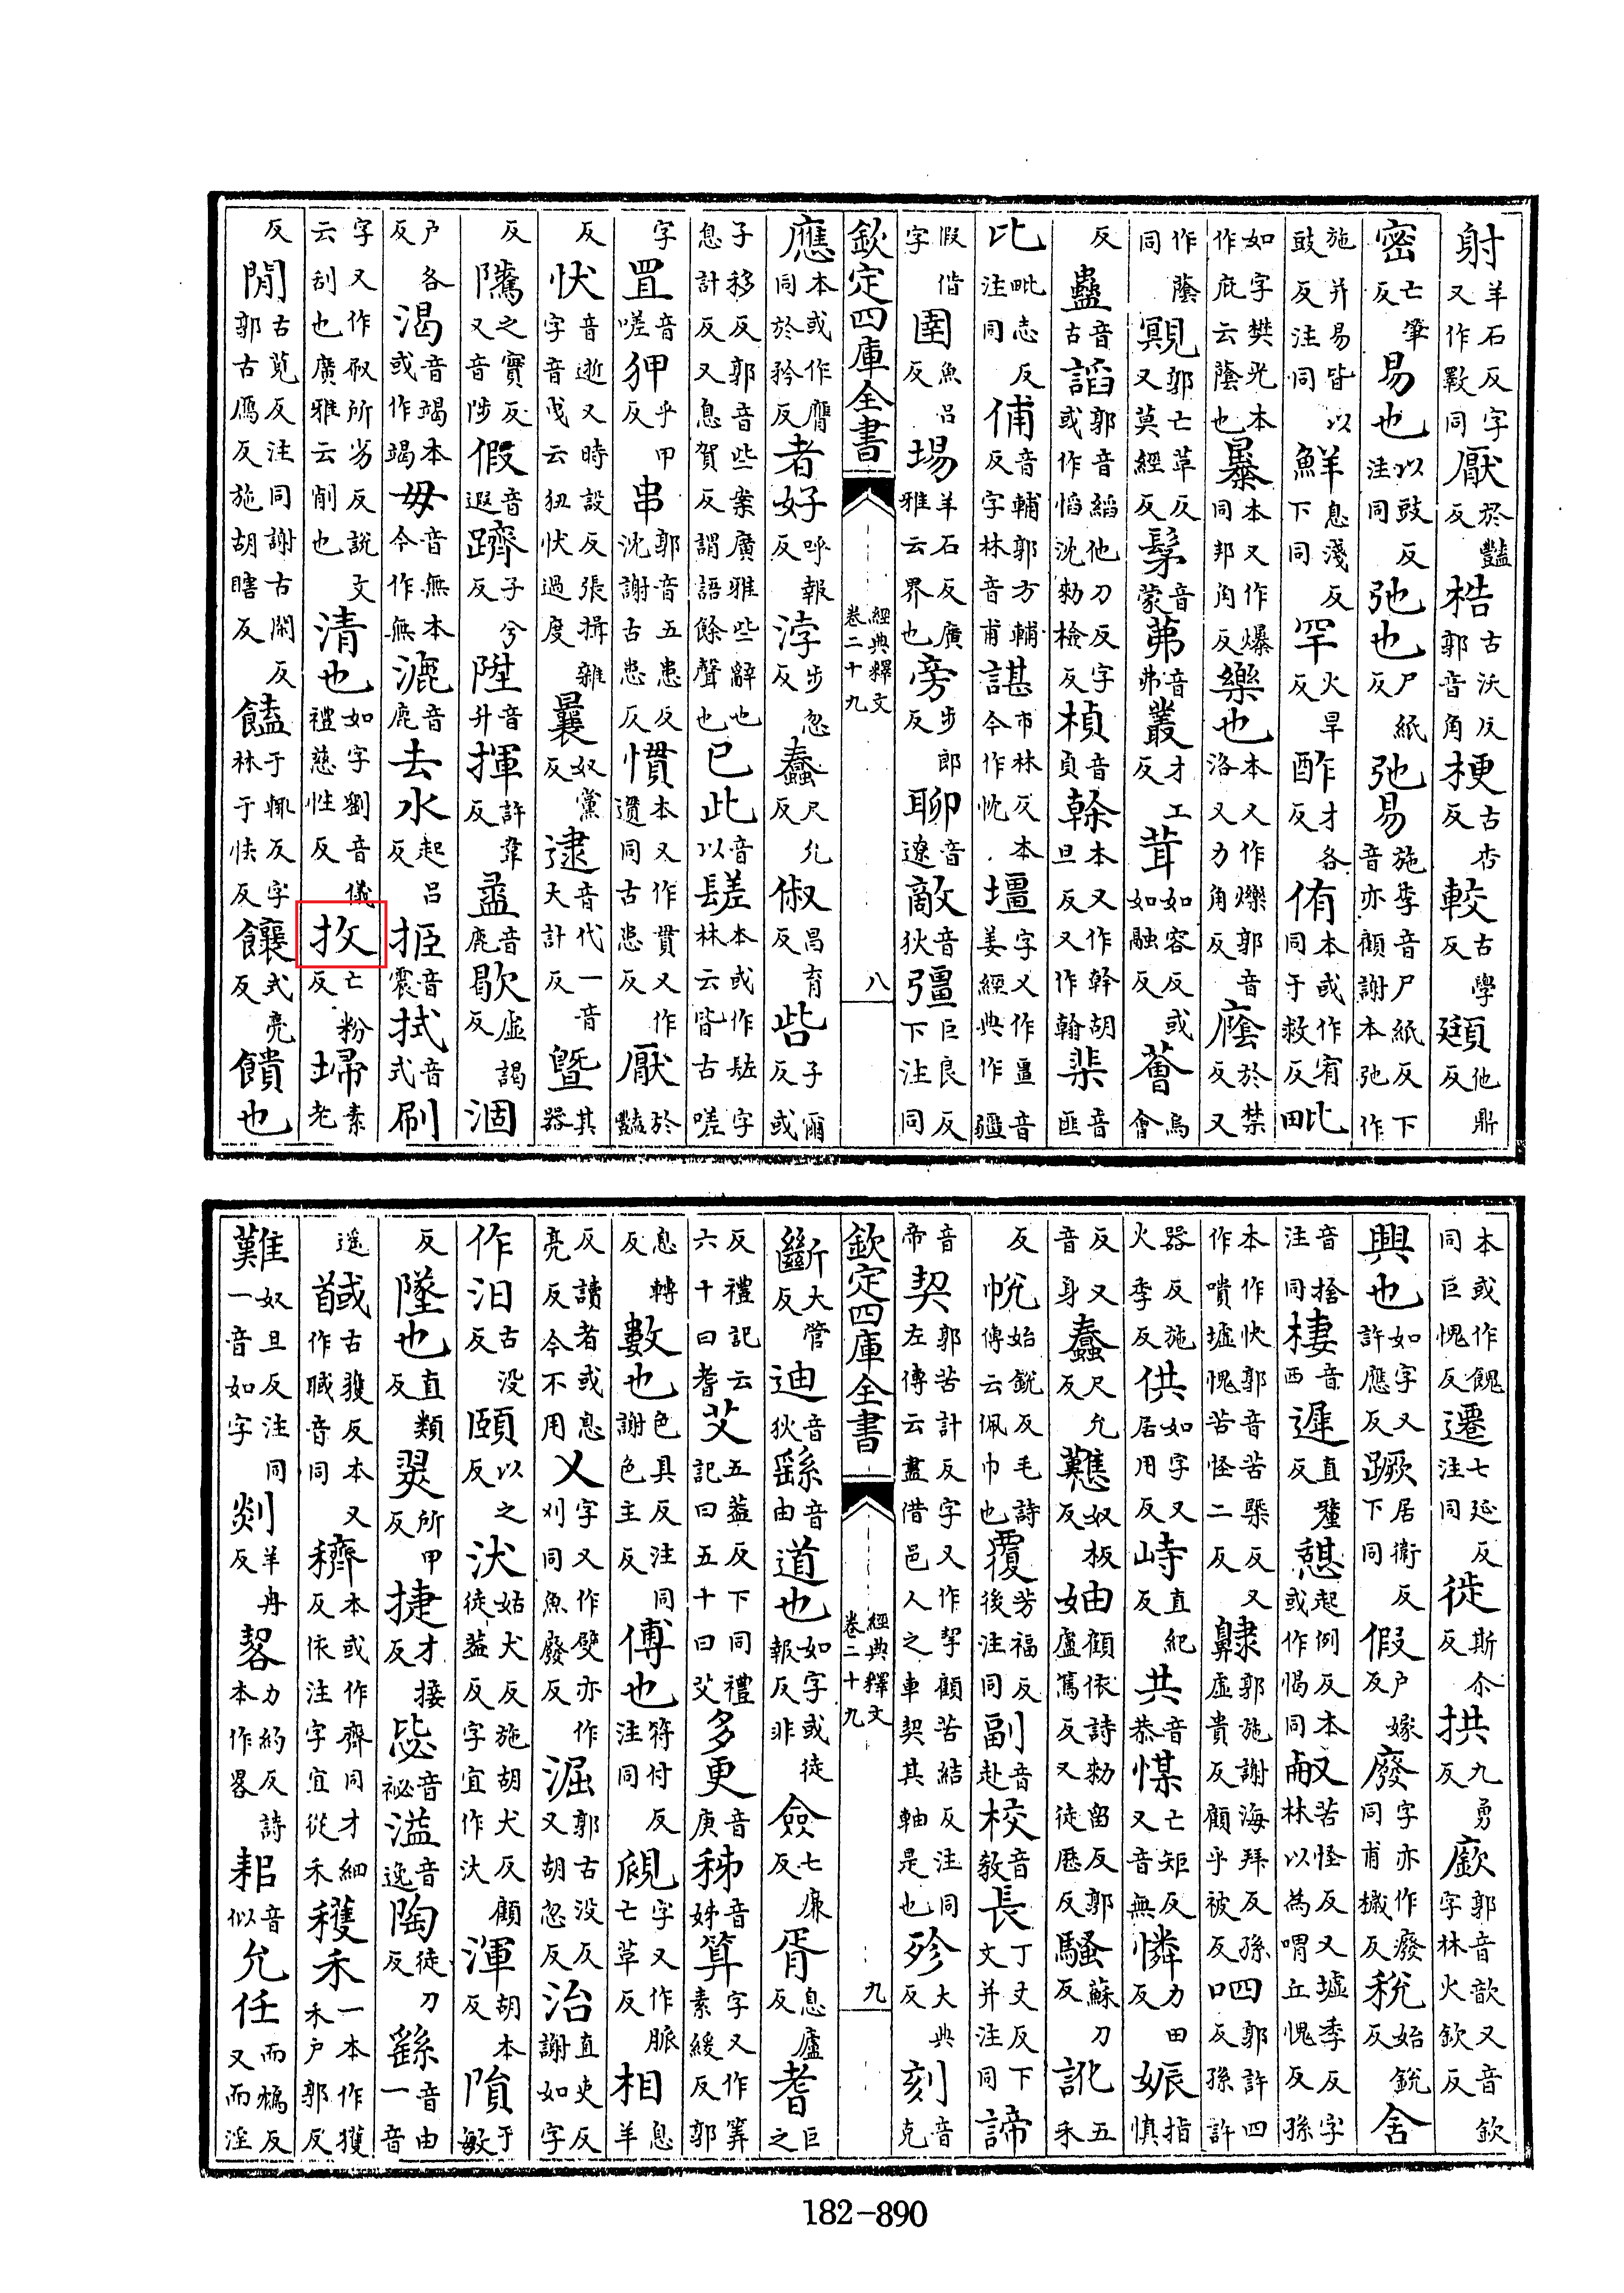 射羊石反字又作斁同厭於豔反梏古沃反郭音角梗古杏反較古學反頲他鼎反
密亡筆反易也以豉反注同弛也尸紙反弛易施李音尸紙反下音亦顧謝本弛作
施并易皆以豉反注同鮮息淺反下同罕火旱反酢才各反侑本或作宥同于救反毗
如字樊光本作庇云蔭也㬥本又作爆同邦角反樂也本又作爍郭音洛又力角反廕於禁反又
作蔭同覭郭亡革反又莫經反髳音蒙茀音弗叢才工反茸如容反或如融反薈烏會
反蠱音古謟郭音縚他刀反字或作慆沈勑檢反楨音貞榦本又作幹胡旦反又作翰棐音匪
比毗志反注同俌音輔郭方輔反字林音甫諶市林反本今作忱壃字又作畺音姜經典作疆
假借字圉魚呂反場羊石反廣雅云界也旁步郎反聊音遼敵音狄彊巨良反下注同
欽定四庫全書 經典釋文 卷二十九 八
應本或作譍同於矜反者好呼報反浡步忽反蠢尺允反俶昌育反呰子爾反或
子移反郭音些案廣雅些辭也息計反又息賀反謂語餘聲也已此音以䰈本或作髭字林云皆古嗟
字罝音嗟狎乎甲反串郭音五患反沈謝古患反慣本又作貫又作遦同古患反厭於豔
反忕音逝又時設反張揖雜字音曳云狃忕過度曩奴黨反逮音代一音天計反曁其器
反隲之實反又音陟假音遐躋子兮反陞音升揮許韋反盝音鹿歇虛謁反涸
戶各反渴音竭本或作竭毋音無本今作無漉音鹿去水起呂反挋音震拭音式刷
字又作㕞所劣反說文云刮也廣雅云削也清也如字劉音儀禮慈性反抆亡粉反埽素老
反閒古莧反注同謝古閑反郭古鴈反施胡瞎反饁于輒反字林于怯反饟式亮反饋也
本或作餽同巨愧反遷七延反注同徙斯尒反拱九勇反廞郭音歆又音欽字林火欽反
興也如字又許應反蹶居衛反下同假戶嫁反廢字亦作癈同甫檥反稅始銳反舍
音捨注同棲音西遲直𨤲反憩起例反本或作愒同㕡苦怪反又墟季反字林以為喟丘愧反孫
本作快郭音苦槩反又作嘳墟愧苦怪二反齂郭施謝海拜反孫虛貴反顧乎被反呬郭許四反孫許
器反施火季反供如字又居用反峙直紀反共音恭㥤亡矩反又音無憐力田反娠指慎
反又音身蠢尺允反戁奴板反妯顧依詩勑留反郭盧篤反又徒歷反騷蘇刀反訛五禾
反帨始銳反毛詩傳云佩巾也覆芳福反後注同副音赴校音教長丁丈反下文并注同諦
音帝契郭苦計反字又作挈顧苦結反注同左傳云盡借邑人之車契其軸是也殄大典反刻音克
欽定四庫全書 經典釋文 卷二十九 九
斷大管反迪音狄繇音由道也如字或徒報反非僉七廉反胥息廬反耆巨之
反禮記云六十曰耆艾五蓋反下同禮記曰五十曰艾多更音庚秭音姊算字又作筭素緩反郭
息轉反數也色具反注同謝色主反傅也符付反注同覛字又作脈亡革反相息羊
反讀者或息亮反今不用乂字又作嬖亦作刈同魚廢反淈郭古没反又胡忽反治直吏反謝如字
作汩古没反頤以之反汱姑犬反施胡犬反顧徒蓋反字宜作汏渾胡本反隕于敏
反墜也直類反翜所甲反捷才接反毖音祕溢音逸陶徒刀反繇音由一音
遥馘古獲反本又作聝音同穧本或作齊同才細反依注字宜從禾穫禾一本作獲禾戶郭反
難奴旦反注同一音如字剡羊冉反䂮力約反詩本作畧耜音似允任而鴆反又而淫
182-890